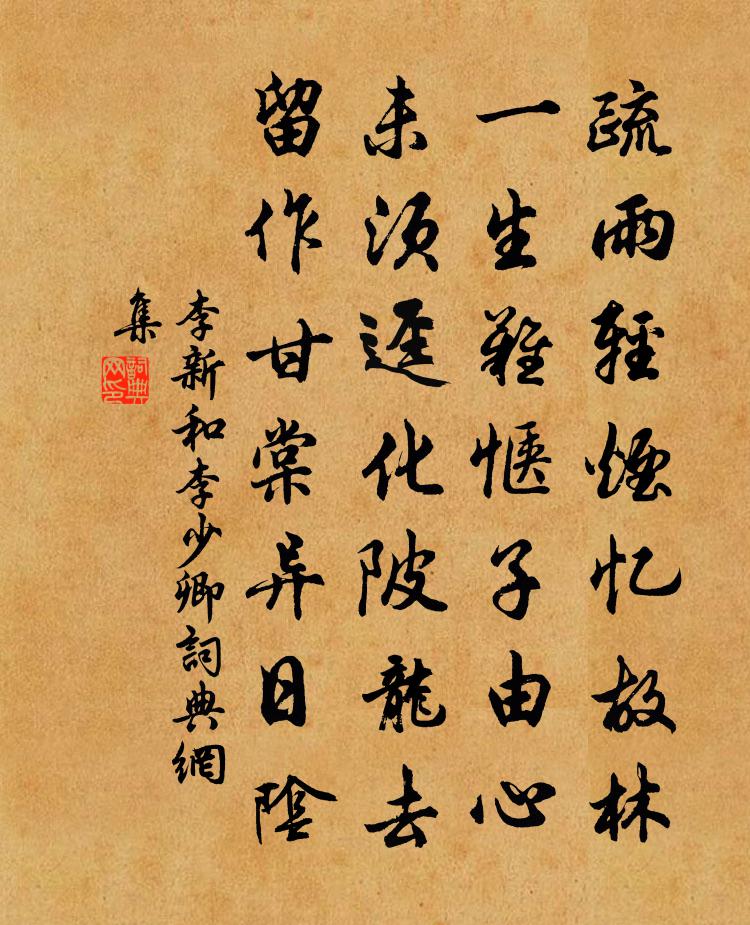 疏雨輕煙忆故林
一生難惬子由心
未須遽化陂龍去
留作甘棠异日陰
李新和李少卿詞典網
集
詞典网印